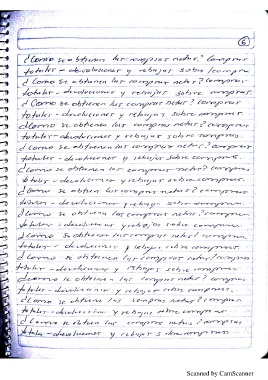 6
¿Como se obtienen las compras netas? compras
totales - devoluciones y rebajas sobre compra
¿Como se obtienen las compras netas? compras
totales - devoluciones y rebajas sobre compras
¿Como se obtienen las compras netas? compras
totales - devoluciones y rebajas sobre compras.
¿Como se obtienen las compras netas? compras
totales - devoluciones y rebajas sobre compras.
¿Como se obtienen las compras netas? compras
totales - devoluciones y rebajas sobre compras
¿Como se obtienen las compras netas? compras
totales - devoluciones y rebajas sobre compras.
¿Como se obtienen las compras netas? compras
totales - devoluciones y rebajas sobre compras
¿Como se obtienen las compras netas? compras
totales - devoluciones y rebajas sobre compras.
¿Como se obtienen las compras netas? compras
totales - devoluciones y rebajas sobre compras
¿Como se obtienen las compras netas? compras
totales - devoluciones y rebajas sobre compras
¿Como se obtienen las compras netas? compras
totales - devoluciones y rebajas sobre compras.
¿Como se obtiene las compras netas? compras
totales - devolucion y rebajas sobre compras
¿Como se obtien las compras netas? compras
totales - devoluciones y rebajas sobre compras
Scanned by CamScanner